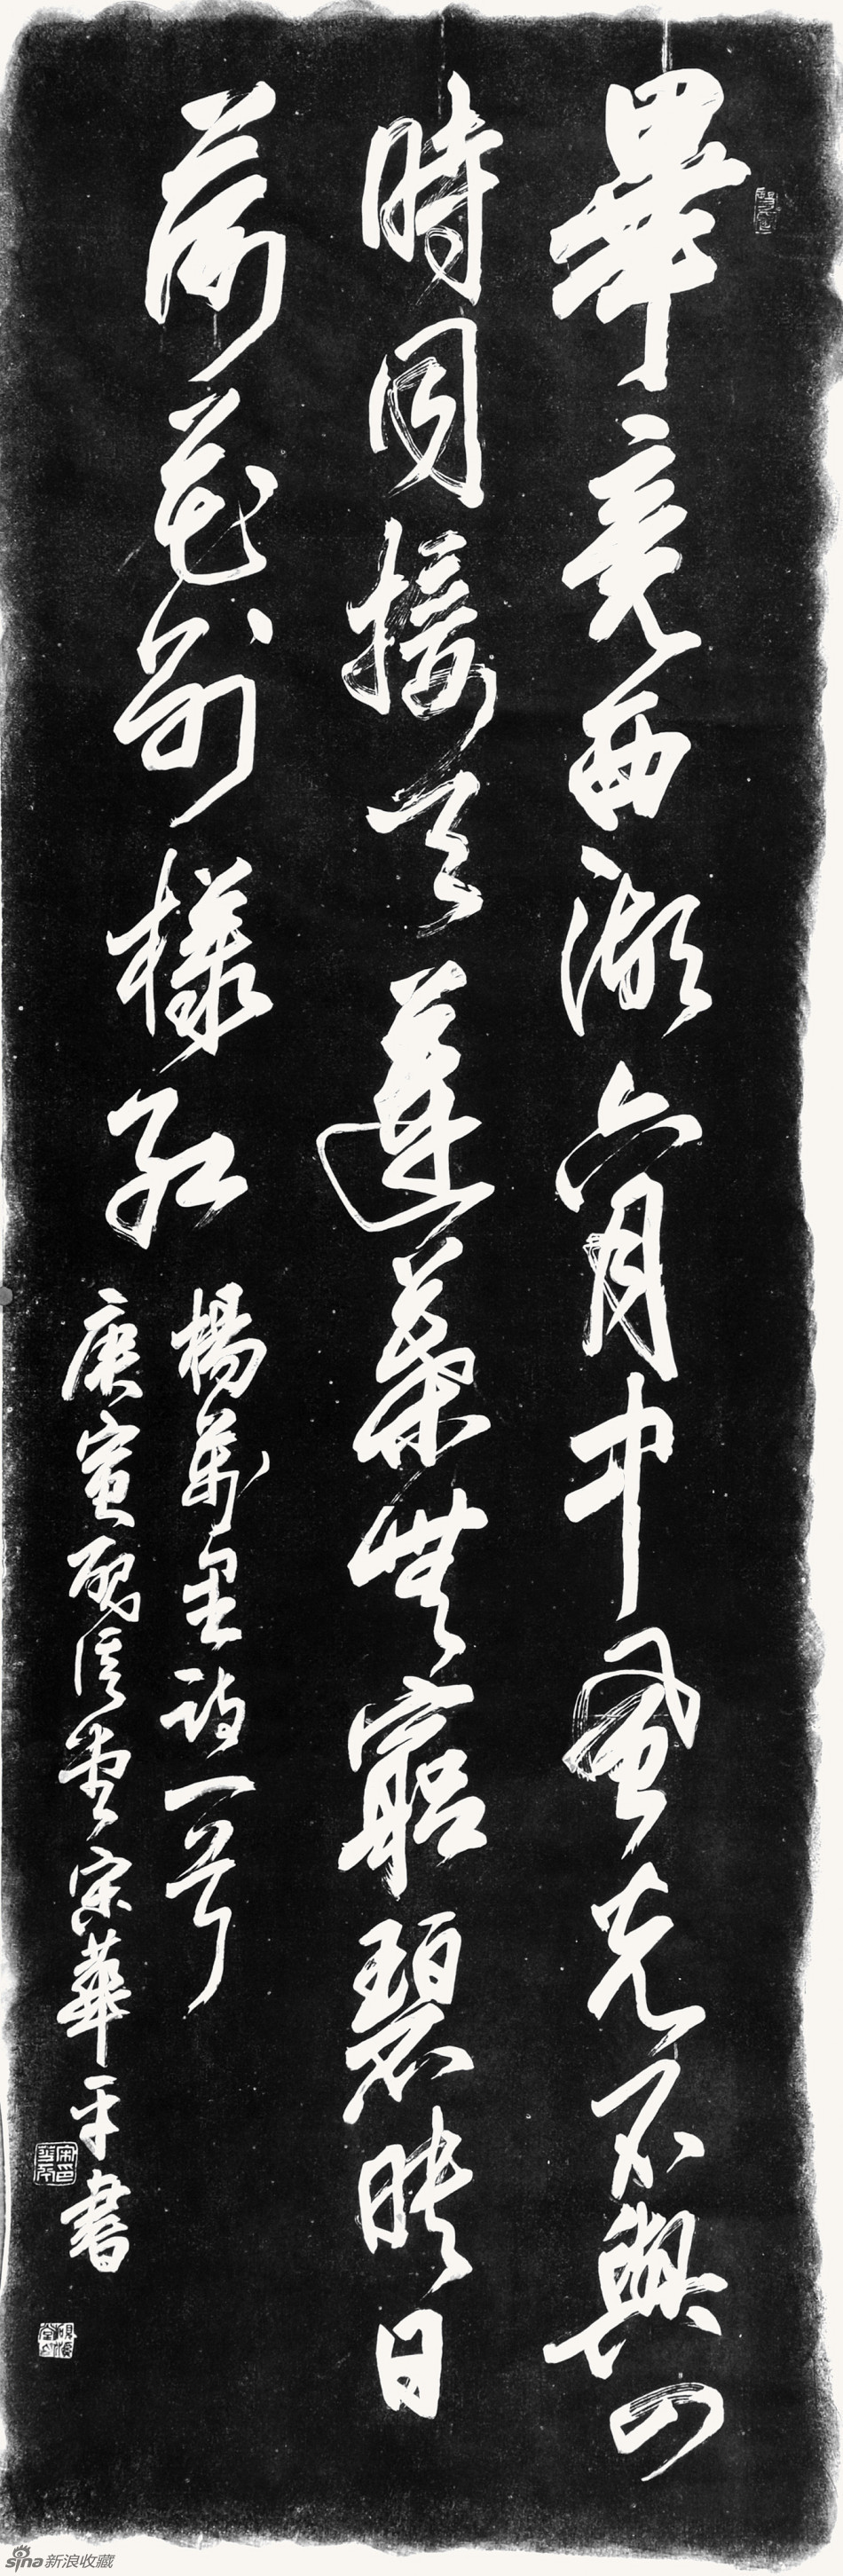 畢竟西湖六月中風光不與四
時同接天蓮葉無窮碧映日
荷花別樣紅
楊萬里詩一首
庚寅硯滨堂宋華平書
sina新浪收藏